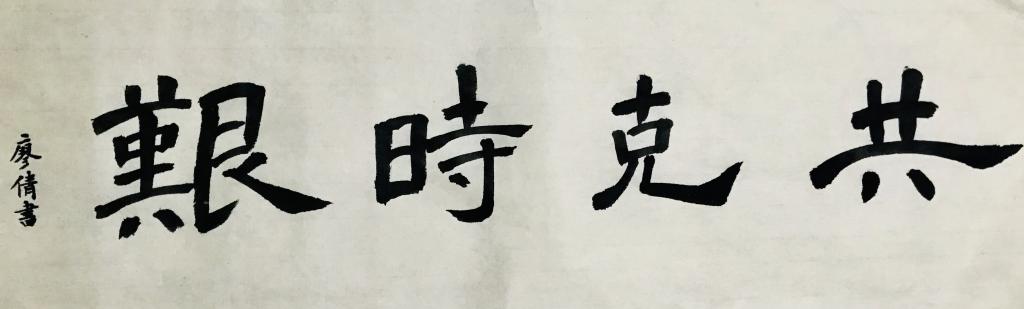 共克時艱
廖倩書